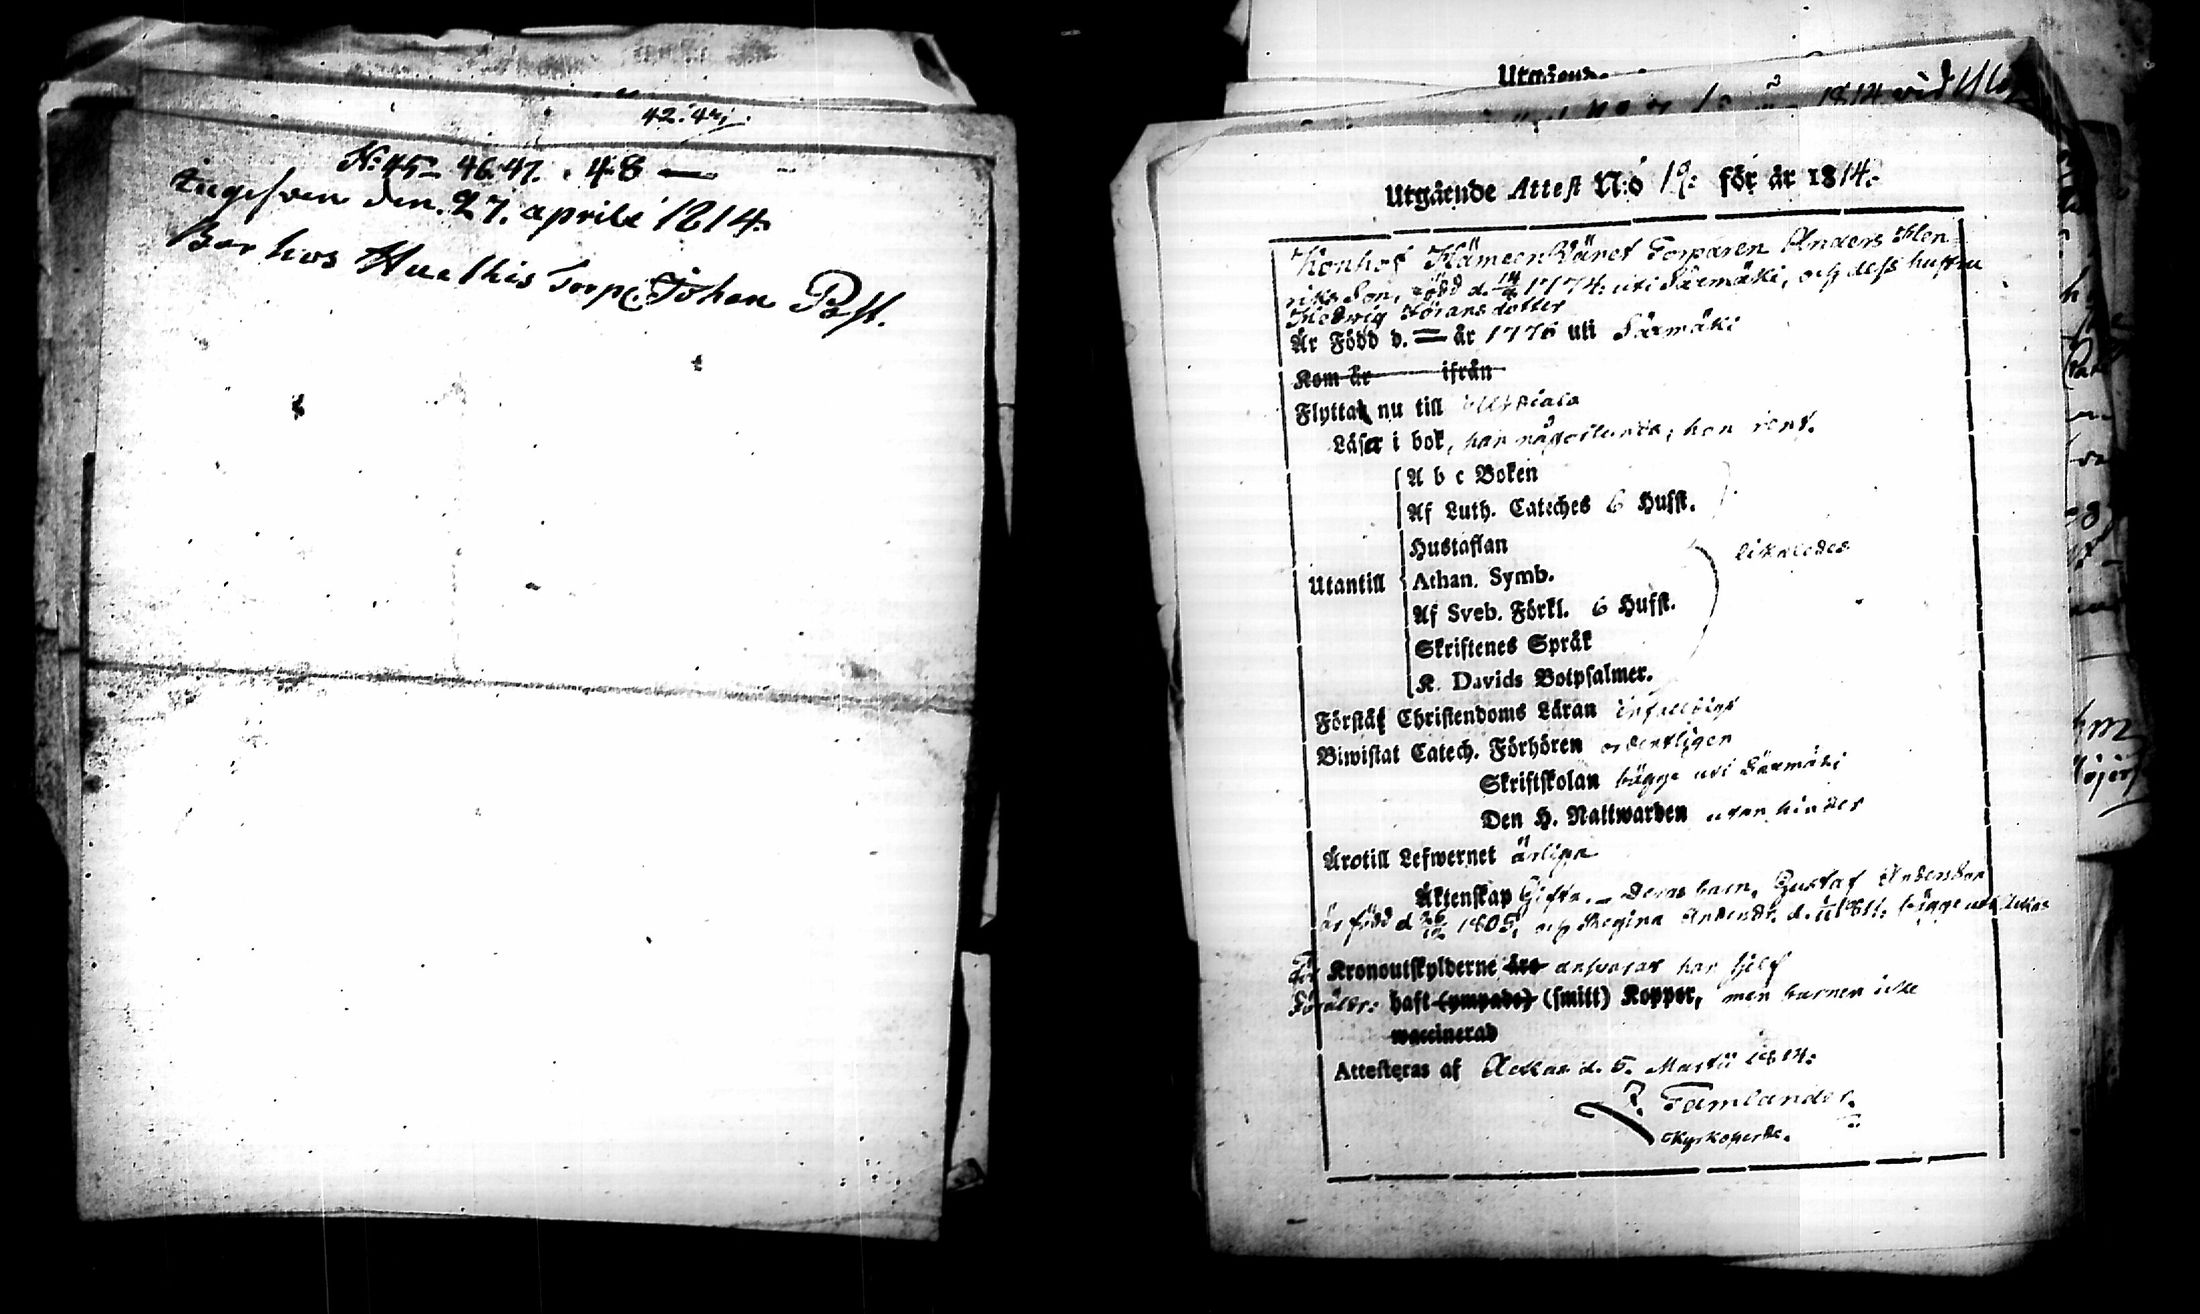 42. 43/.
N: 45 — 46. 47. . 48 —
Ingefwen den. 27. aprill 1814.
Bor hos Torp. Johan Post.
Utgående
1814
Utgående Attest N:o 19: för år 1814.
Torparen Anders Hen
riks Son, född d. 14/4 1774: uti Säxmäki, och dess hustru
Hedwig Göransdotter
År Född d. — år 1776 uti Säxmäki
Kom år ifrån
Flytta nu till Ulfsiala
Läser i bok, han någorlunda, hon rent.
A b c Boken
Af Luth. Cateches 6 Hufst.
Hustaflan
likaledes
Utantill
Athan. Symb.
Af Sveb. Förkl. 6 Hufst.
Skriftenes Språk
K. Davids Botpsalmer.
Förstå Christendoms Läran enfaldigt
Biwistat Catech. Förhören ordentligen
Skriftskolan bägge uti Säxmäki
Den H. Nattwarden utan hinder
Ärotill Lefwernet ärliga
Äktenskap Gifta. — Deras barn, Gustaf Andersson
är född d 26/12 1805, och Regina Andersdr. d. 1811. bägge uti Ackas
För Kronoutskylderne äro answarar han sjelf
haft (ympade) (smitt) Koppor, men barnen icke
waccinerad
Attesteras af Ackas d. 5. Martii 1814:
Tamlander.
Kyrkoherde.